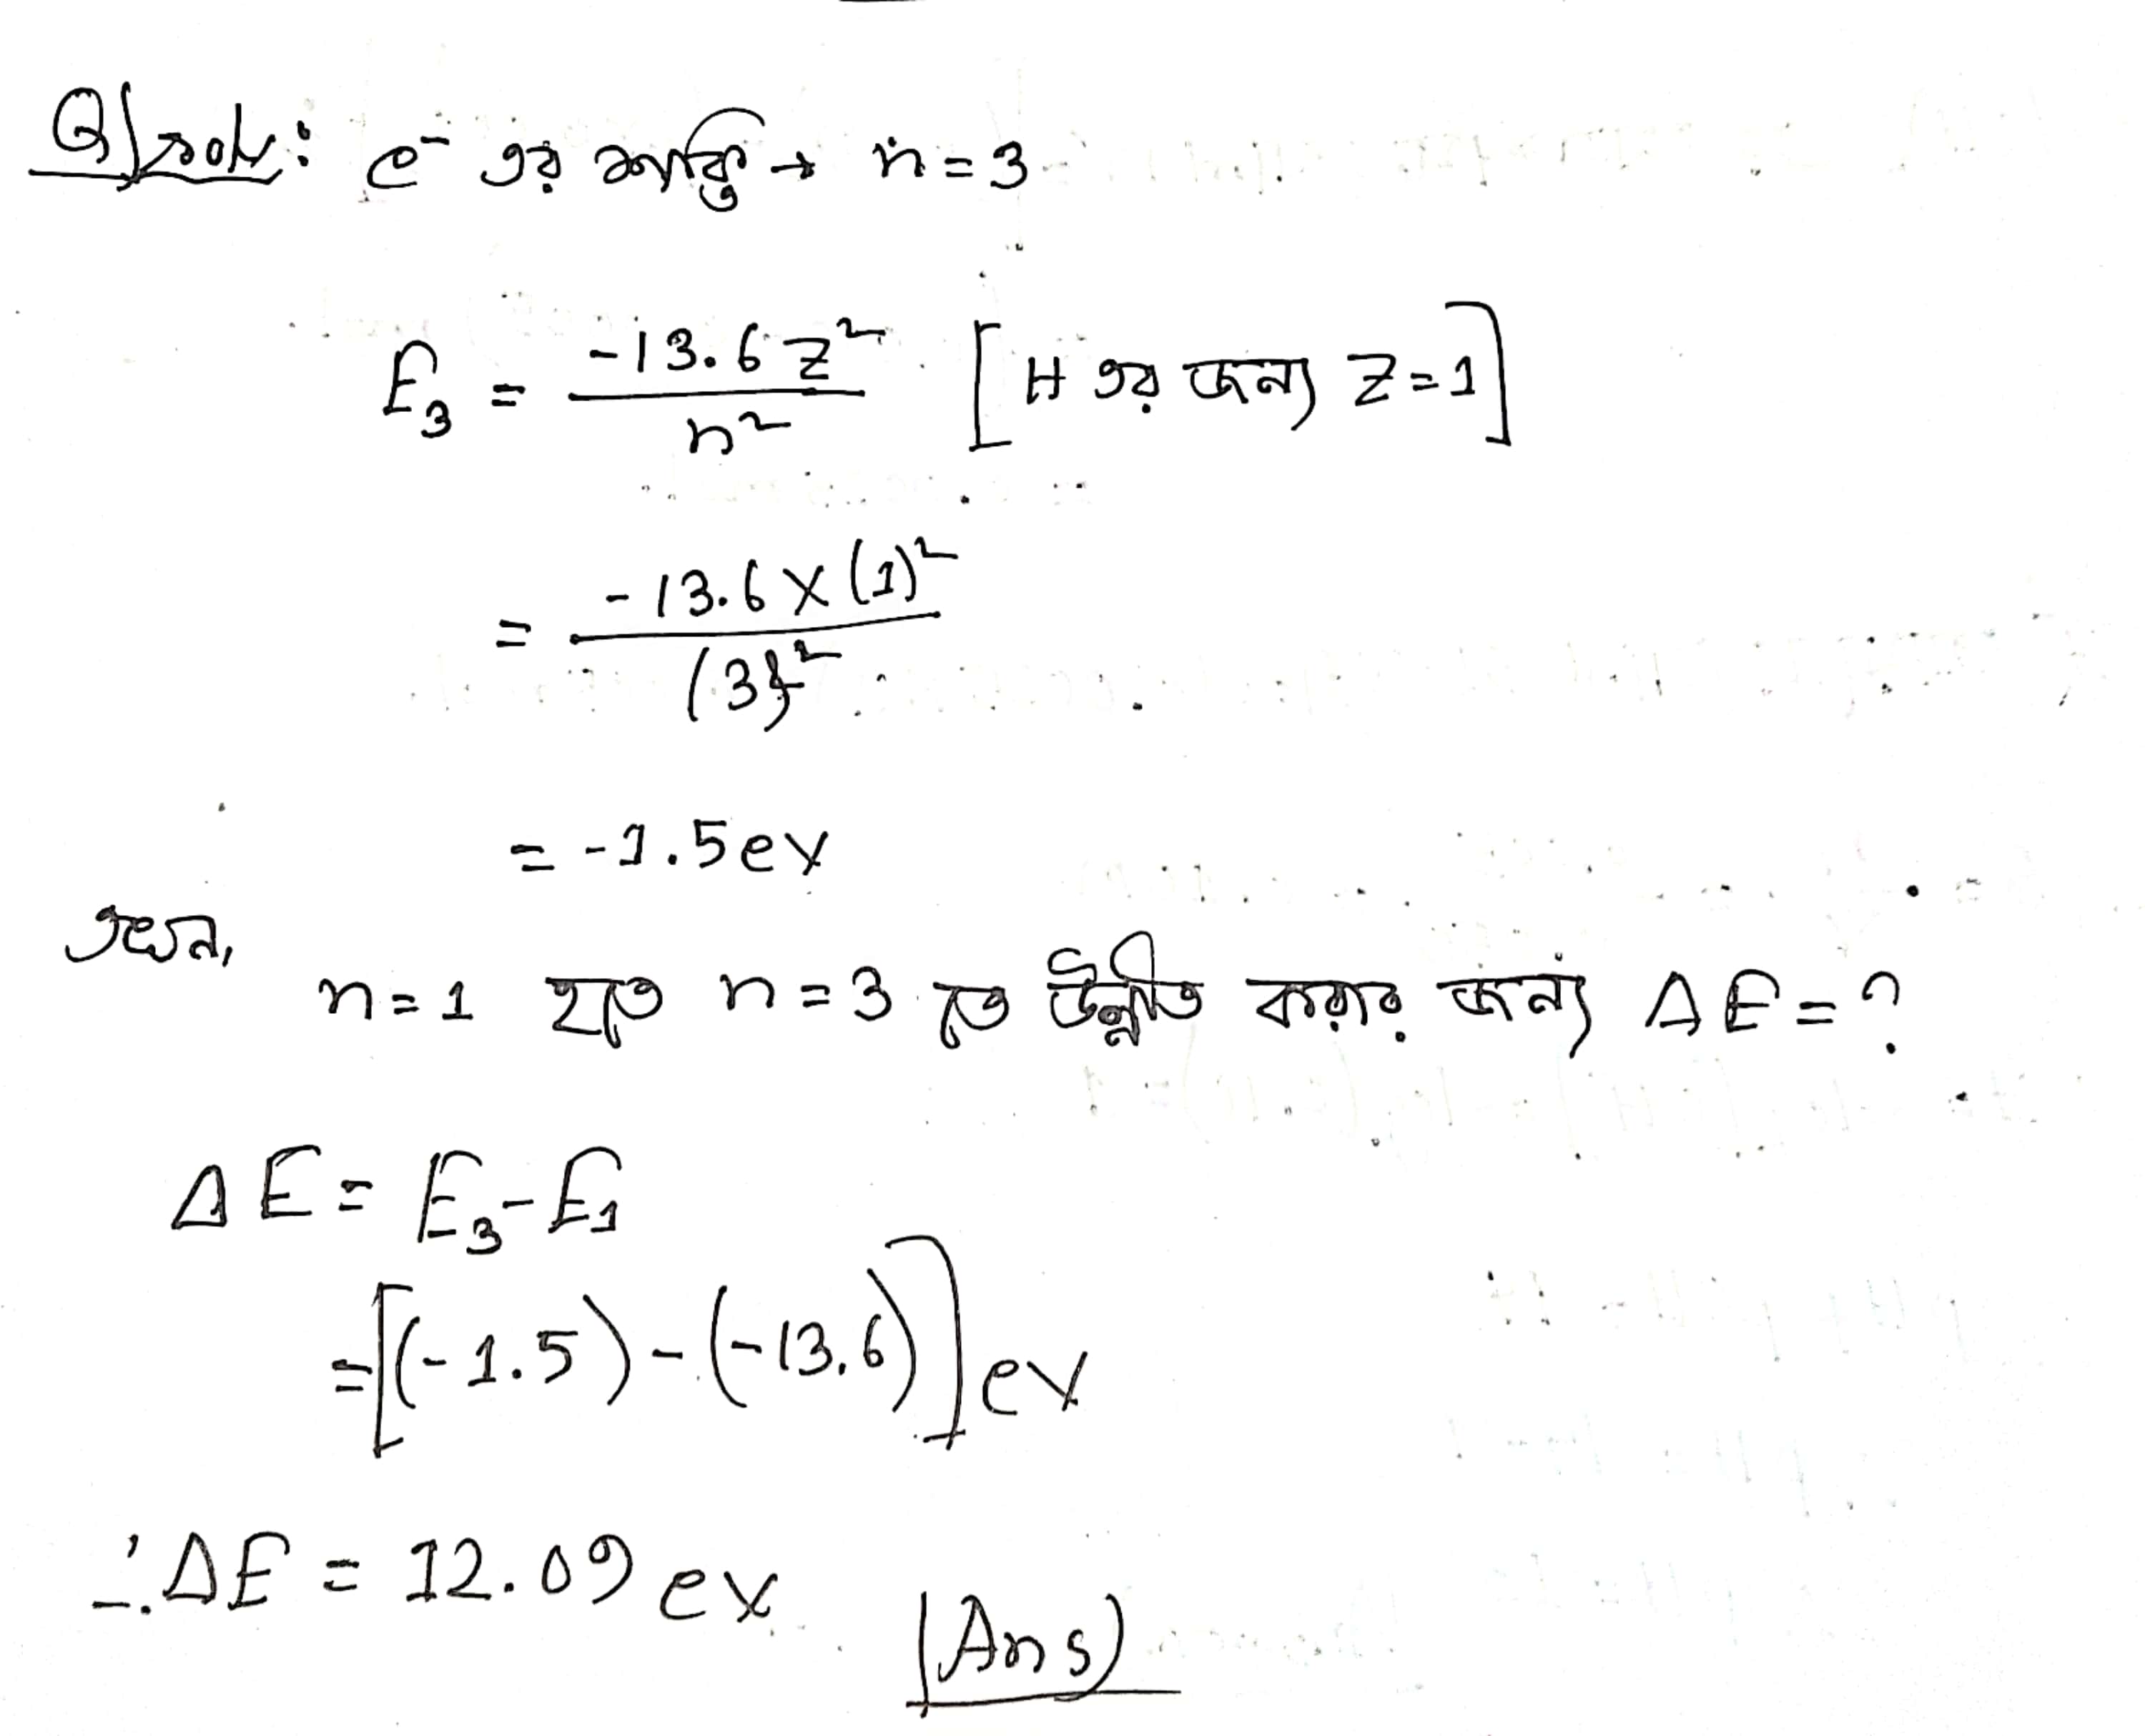 Q|soln: e⁻ এর শক্তি → n = 3
E₃ = -13.6 z² / n² [H এর জন্য z = 1]
= -13.6 x (1)² / (3)²
= -1.5 ev
এখন,
n = 1 হতে n = 3 তে উন্নতি করার জন্য ΔE = ?
ΔE = E₃ - E₁
= [(-1.5) - (-13.6)] ev
∴ ΔE = 12.09 ev
(Ans)